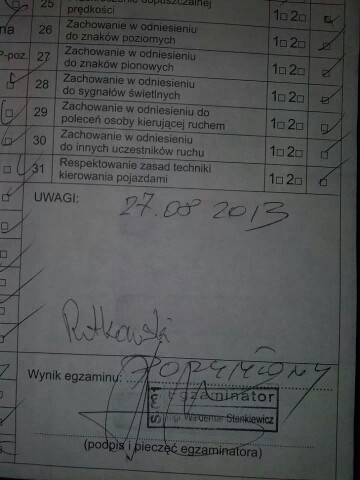 25 dopuszczalnej
prędkości 1□ 2□
na 26 Zachowanie w odniesieniu
do znaków poziomych 1□ 2□
P-poz. 27 Zachowanie w odniesieniu
do znaków pionowych 1□ 2□
28 Zachowanie w odniesieniu
do sygnałów świetlnych 1□ 2□
29 Zachowanie w odniesieniu do
poleceń osoby kierującej ruchem 1□ 2□
30 Zachowanie w odniesieniu
do innych uczestników ruchu 1□ 2□
31 Respektowanie zasad techniki
kierowania pojazdami 1□ 2□
UWAGI:
27.08 2013
Rutkowski
Wynik egzaminu:
egzaminator
Waldemar Stenkiewicz
(podpis i pieczęć egzaminatora)